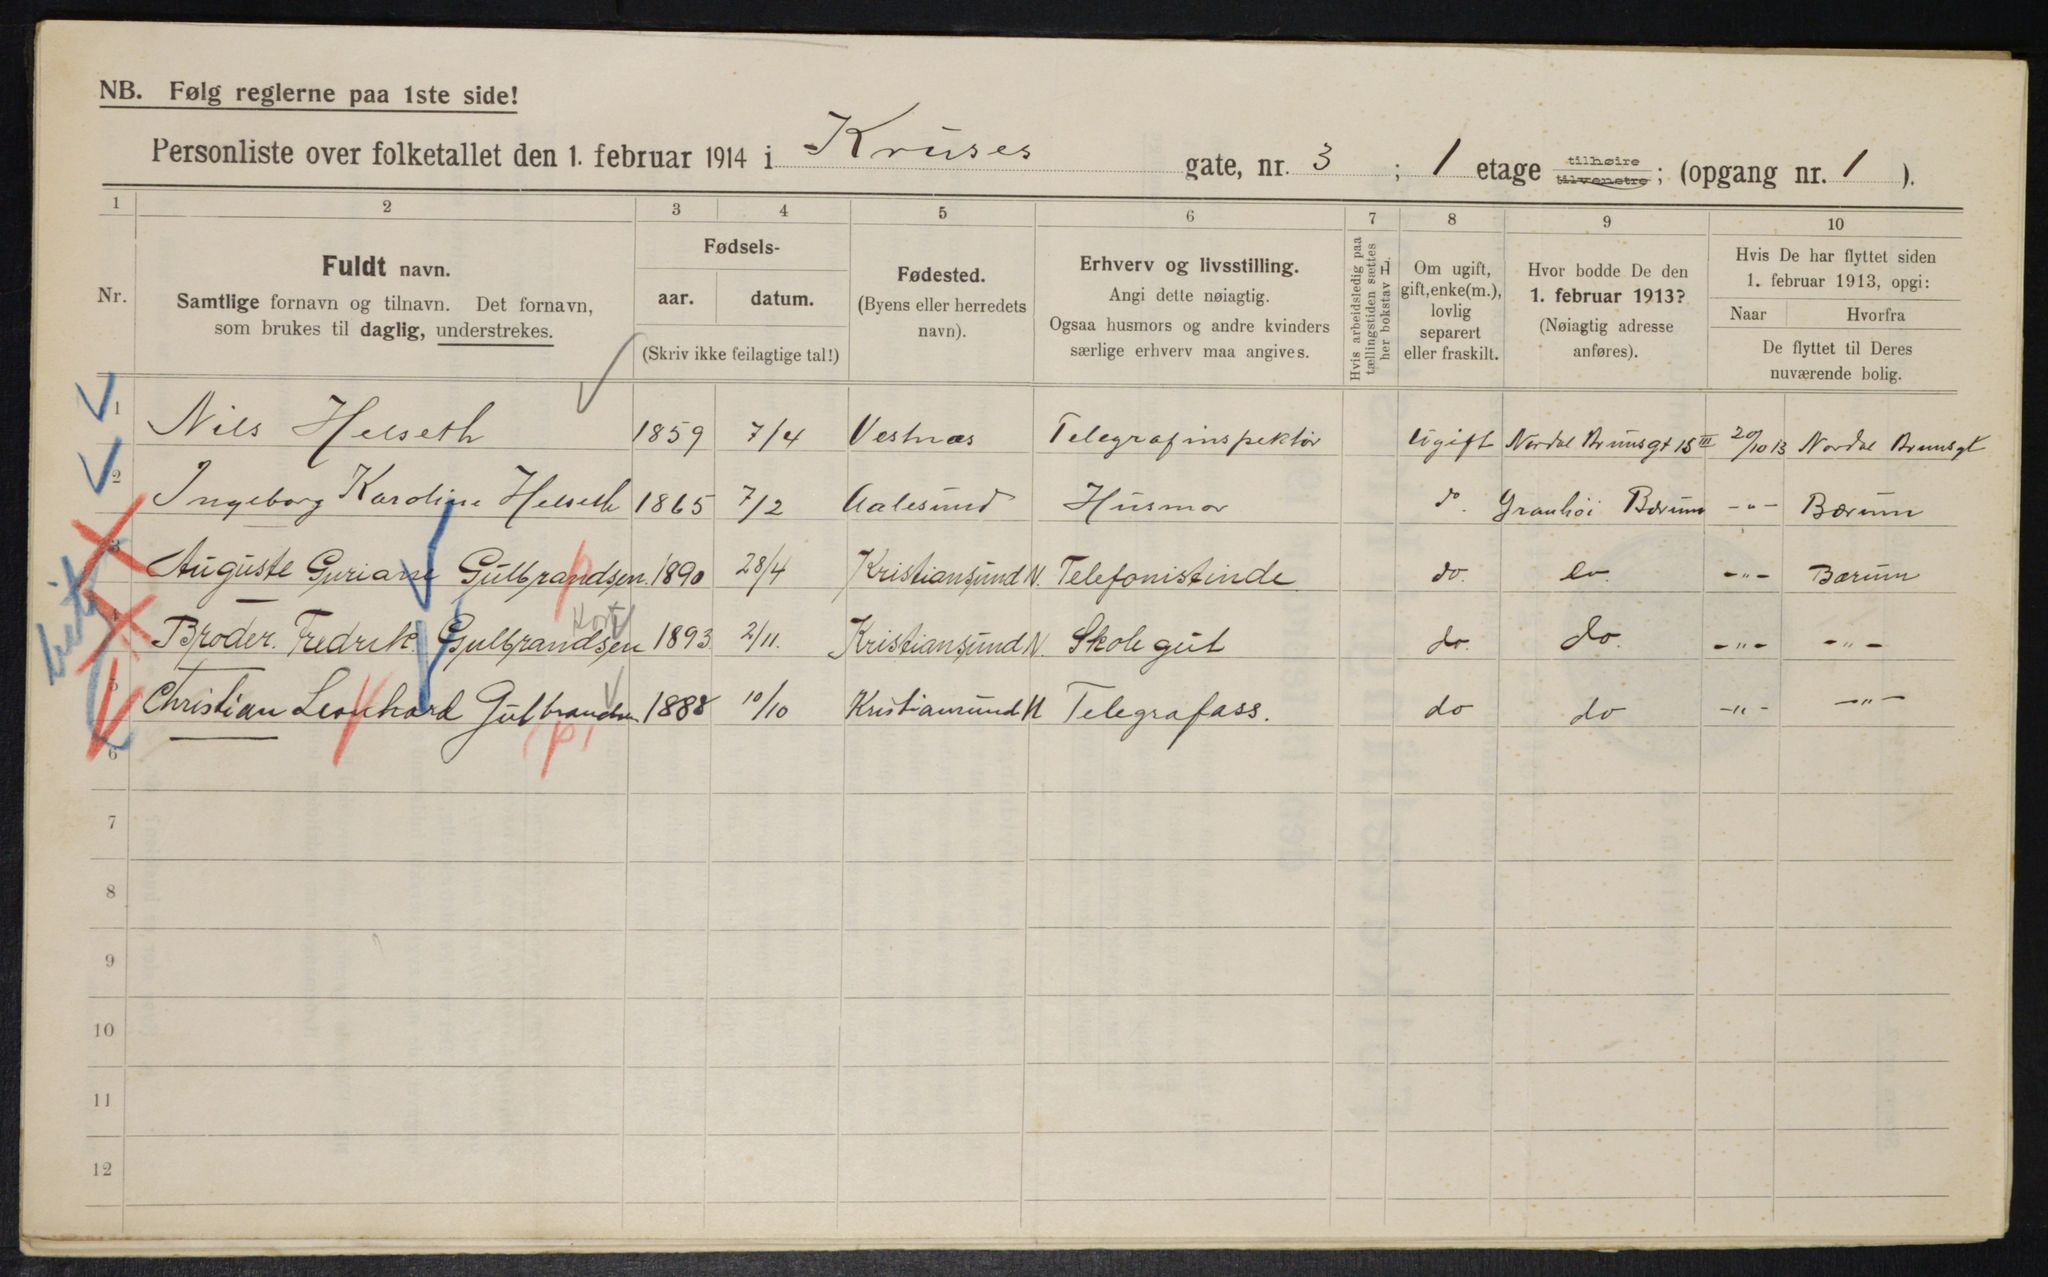 NB. Følg reglerne paa 1ste side!
Personliste over folketallet den 1. februar 1914 i Kruses gate, nr. 3 ; 1 etage tilhøire tilvenstre; (opgang nr. 1 ).
1 2 3 4 5 6 7 8 9 10
Nr.
Fuldt navn.
Samtlige fornavn og tilnavn. Det fornavn,
som brukes til daglig, understrekes.
Fødsels-
aar. datum.
(Skriv ikke feilagtige tal!)
Fødested.
(Byens eller herredets
navn).
Erhverv og livsstilling.
Angi dette nøiagtig.
Ogsaa husmors og andre kvinders
særlige erhverv maa angives.
Hvis arbeidsledig paa
tællingstiden sættes
her bokstav H.
Om ugift,
gift, enke(m.),
lovlig
separert
eller fraskilt.
Hvor bodde De den
1. februar 1913?
(Nøiagtig adresse
anføres).
Hvis De har flyttet siden
1. februar 1913, opgi:
Naar Hvorfra
De flyttet til Deres
nuværende bolig.
1 Nils Helseth 1859 7/4 Vestnæs Telegrafinspektör Ugift Nordal Brunsgt 15 III 20/10 13 Nordal Brunsgt
2 Ingeborg Karoline Helseth 1865 7/2 Aalesund Husmor do. Granhöi Bærum -"- Bærum
3 Auguste Guriane Gulbrandsen. 1890 28/4 Kristiansund N. Telefonistinde do. do. -"- Bærum
Kort
4 Broder. Fredrik. Gulbrandsen 1893. 2/11. Kristiansund N. Skolegut do. do. -"- -"-
5 Christian Leonhard Gulbrandsen 1888 10/10 Kristiansund N Telegrafass. do do -"- -"-
6
7
8
9
10
11
12